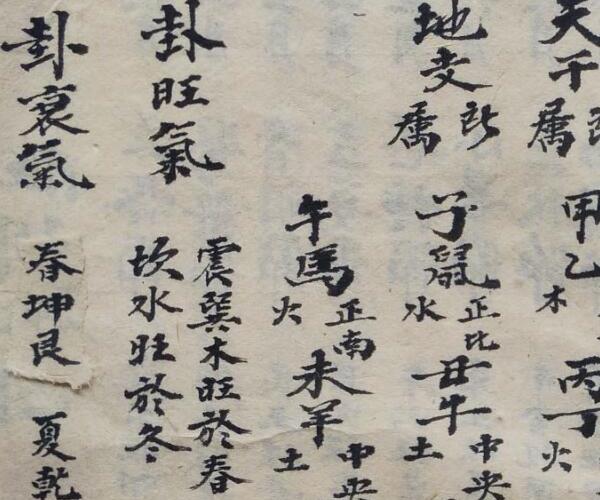 天干属甲乙木丙丁火
地支所属子鼠正北水丑牛中央土
午馬正南火未羊中央土
卦旺氣
震巽木旺於春
坎水旺於冬
卦衰氣春坤艮夏乾